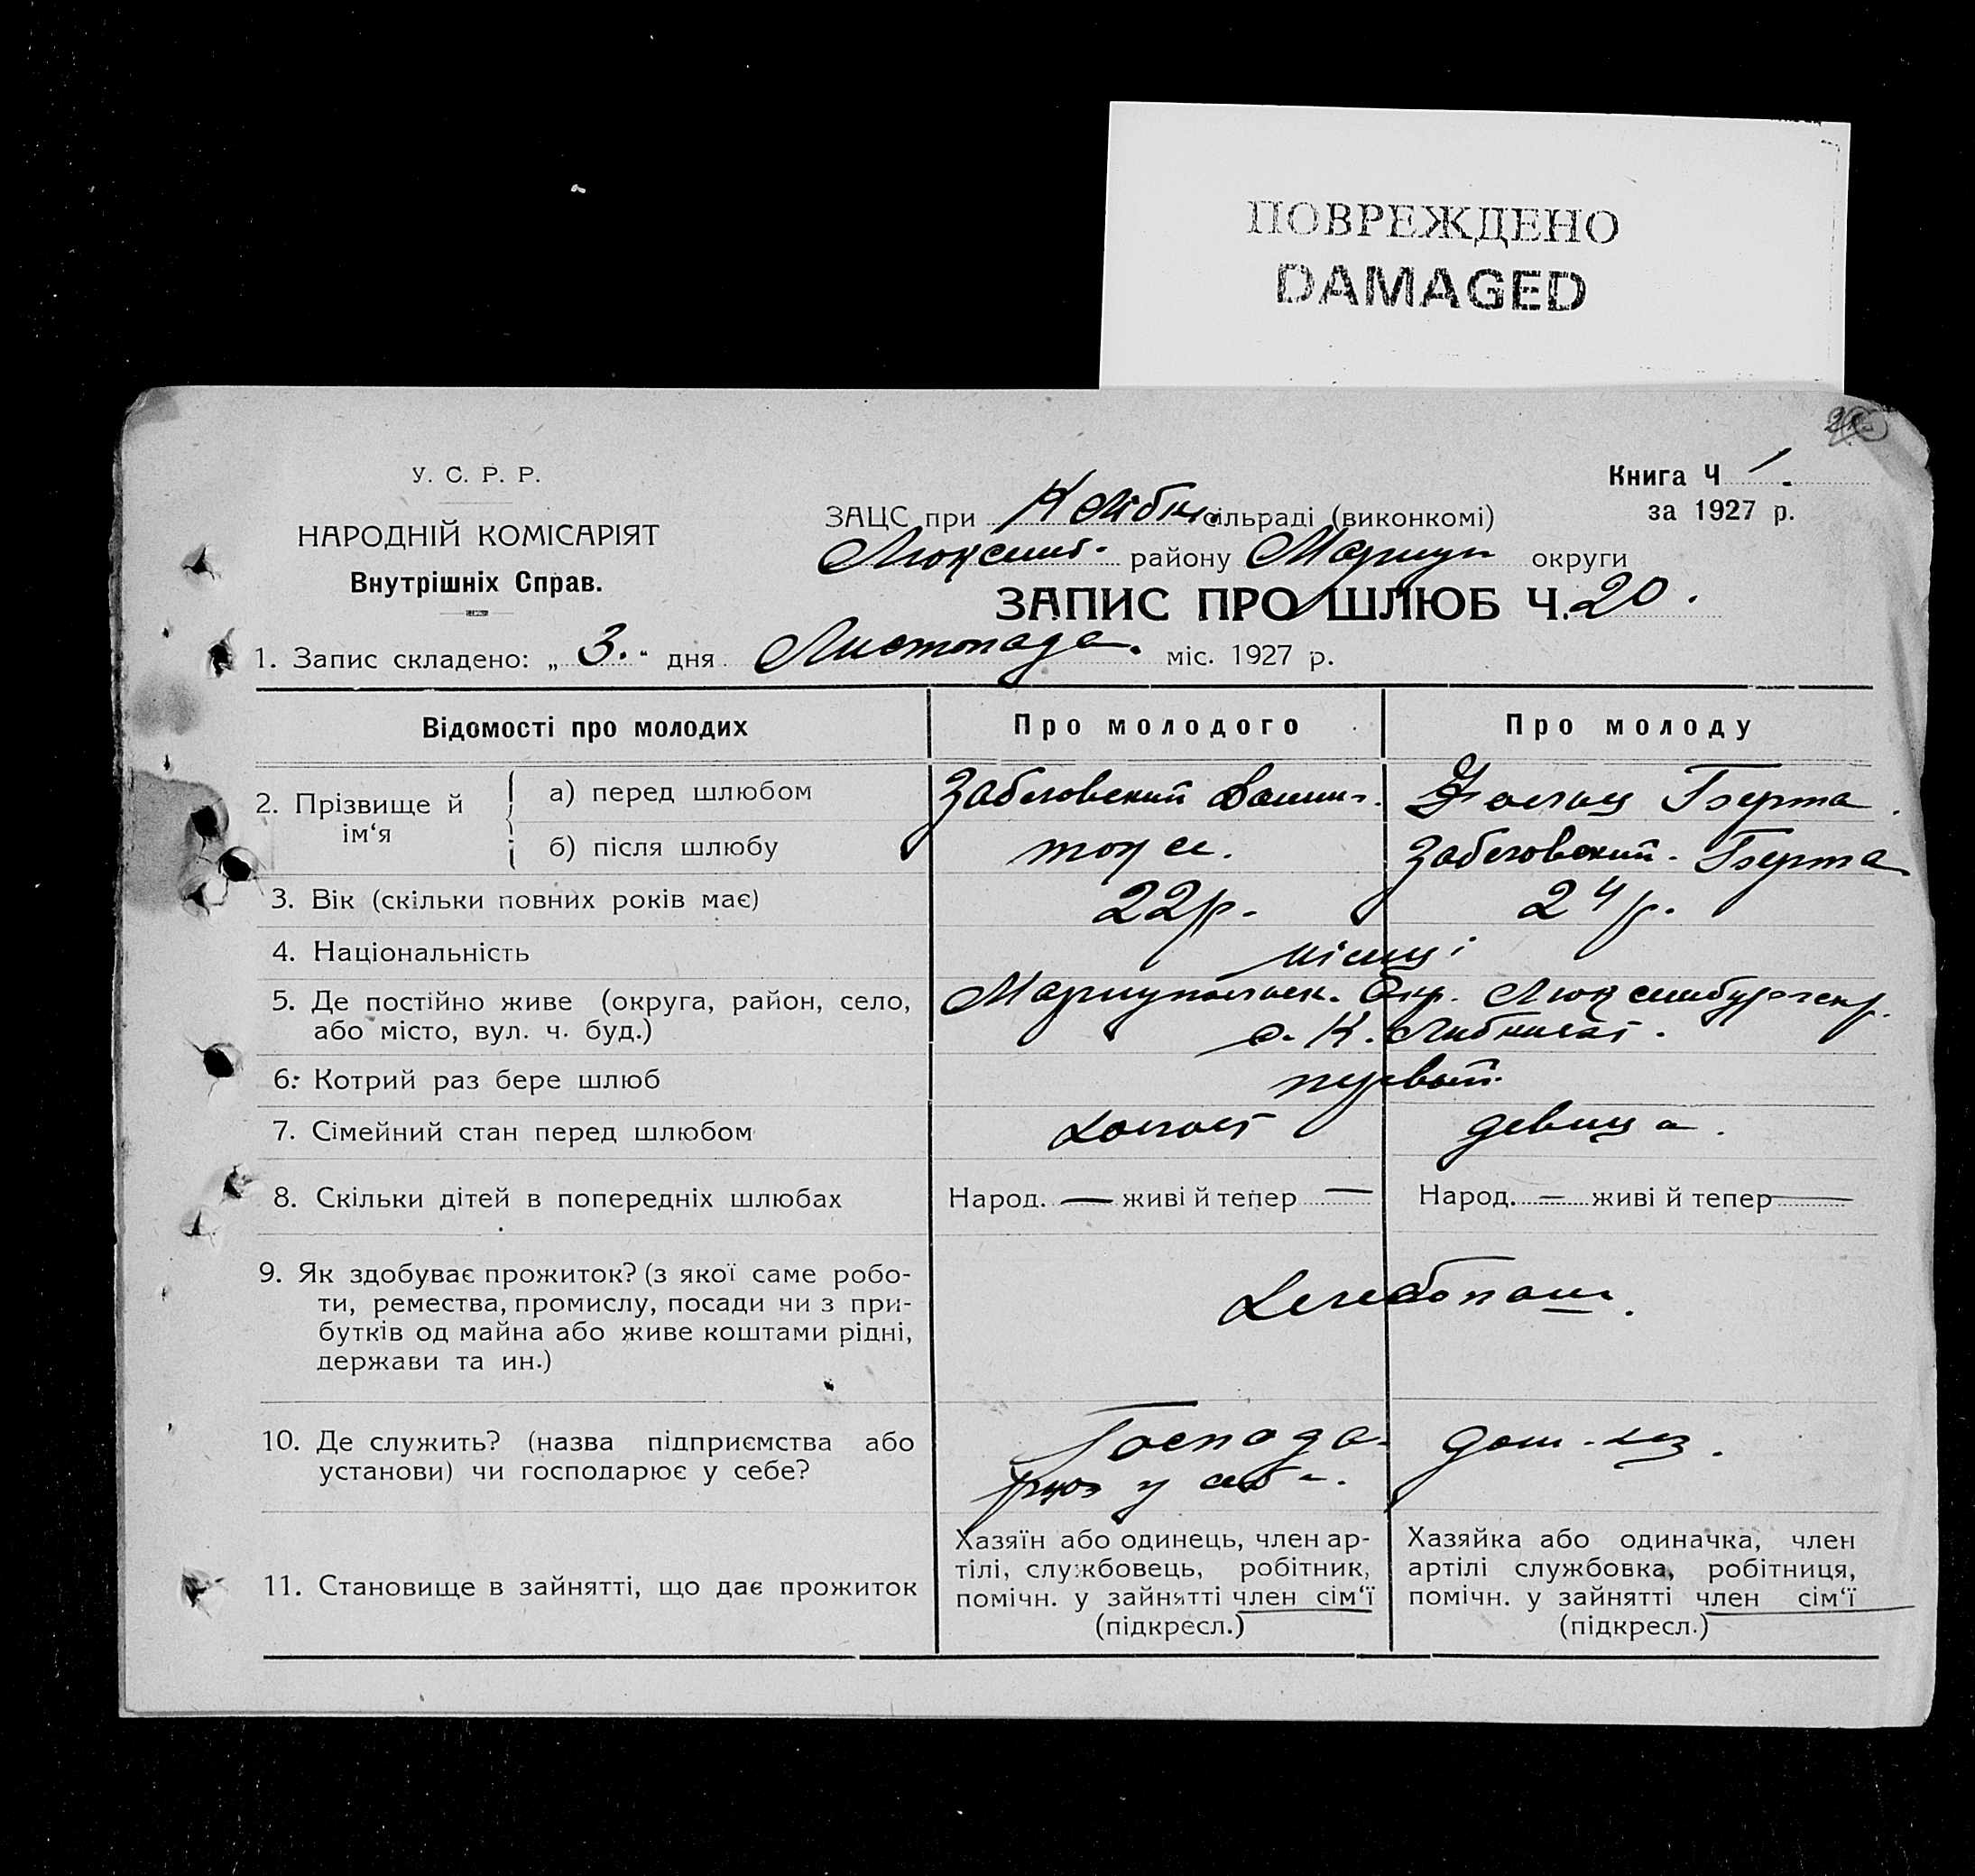 ПОВРЕЖДЕНО
DAMAGED
У. С. Р. Р.
НАРОДНІЙ КОМІСАРІЯТ
Внутрішніх Справ.
Книга Ч 1.
за 1927 р.
ЗАЦС при К Лібкн. сільраді (виконкомі)
Люксемб. району Мариуп округи
ЗАПИС ПРО ШЛЮБ Ч. 20.
1. Запис складено: „ 3. " дня Листопада. міс. 1927 р.
Відомості про молодих
Про молодого
Про молоду
2. Прізвище й ім'я
а) перед шлюбом
Забеловский
Берта
б) після шлюбу
тоже.
Забеловский. Берта
3. Вік (скільки повних років має)
22р.
24р.
4. Національність
німці
5. Де постійно живе (округа, район, село, Мариупольск. Окр. Люксембург
або місто, вул. ч. буд.) с. К. Либкнехт.
6. Котрий раз бере шлюб
первый.
7. Сімейний стан перед шлюбом
холост
девица.
8. Скільки дітей в попередніх шлюбах
Народ. — живі й тепер —
Народ. — живі й тепер —
9. Як здобуває прожиток? (з якої саме робо-
ти, ремества, промислу, посади чи з при-
бутків од майна або живе коштами рідні,
держави та ин.)
Хлебопаш.
10. Де служить? (назва підприємства або
установи) чи господарює у себе?
Господа-
рює у себе.
дом. хоз.
11. Становище в зайнятті, що дає прожиток
Хазяїн або одинець, член ар-
тілі, службовець, робітник,
помічн. у зайнятті член сім'ї
(підкресл.)
Хазяйка або одиначка, член
артілі службовка, робітниця,
помічн. у зайнятті член сім'ї
(підкресл.)